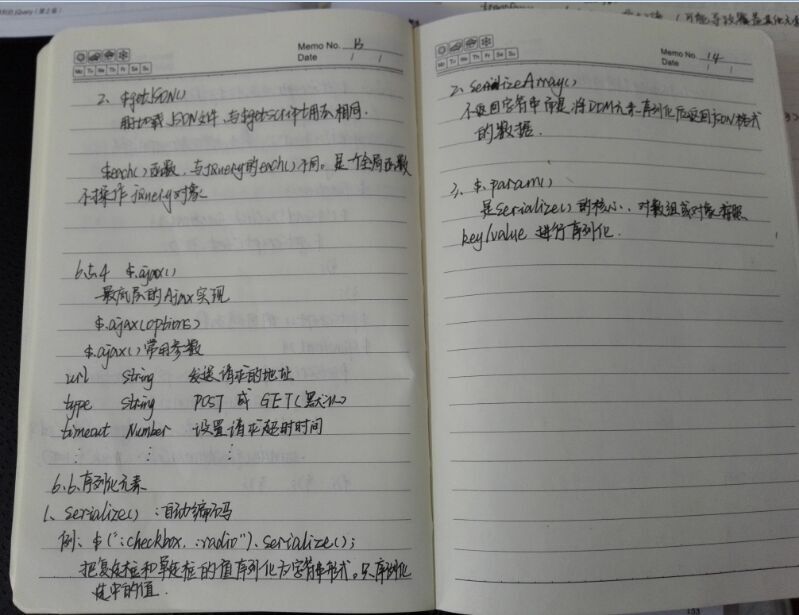 jQuery（第2版）
Memo No. 13
Date / /
Mo Tu We Th Fr Sa Su
2、$.getJSON()
用加载JSON文件，与$.getScript()用法相同.
$.each()函数，与jQuery的each()不同。是一个全局函数
不操作jQuery对象
6.5.4 $.ajax()
最底层的Ajax实现
$.ajax(options)
$.ajax()常用参数
url String 发送请求的地址
type String POST 或 GET(默认)
timeout Number 设置请求超时时间
⋮ ⋮ ⋮
6.6.序列化元素
1、serialize()：自动编码
例：$(":checkbox, :radio").serialize();
把复选框和单选框的值序列化为字符串形式。只序列化
选中的值.
Memo No. 14
Date / /
Mo Tu We Th Fr Sa Su
2、serializeArray()
不返回字符串而是，将DOM元素序列化后返回JSON格式
的数据.
3、$.param()
是serialize()的核心、对数组或对象按照
key/value 进行序列化.
153